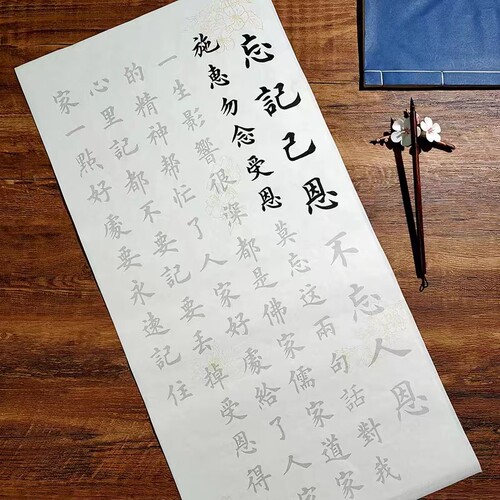 忘記己恩不忘人恩
施惠勿念受恩莫忘這兩句話對我
一生影響很深都是佛家儒家道家
的精神幫忙了人家好處給了人家
心里記都不要記要丟掉受恩得
家一點好處要永遠記住